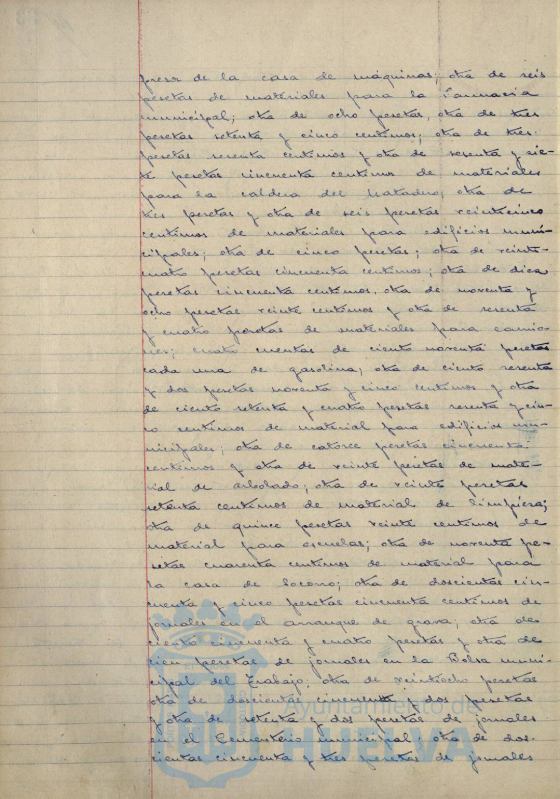 presa de la casa de máquinas; otra de seis
pesetas de materiales para la Farmacia
municipal; otra de ocho pesetas, otra de tres
pesetas setenta y cinco centimos; otra de tres
pesetas sesenta centimos y otra de sesenta y sie-
te pesetas cincuenta centimos de materiales
para la caldera del Matadero; otra de
tres pesetas y otra de seis pesetas veinticinco
centimos de materiales para edificios muni-
cipales; otra de cinco pesetas; otra de veinti-
cuatro pesetas cincuenta centimos; otra de diez
pesetas cincuenta centimos, otra de noventa y
ocho pesetas veinte centimos y otra de sesenta
y cuatro pesetas de materiales para camio-
nes; cuatro cuentas de ciento noventa pesetas
cada una de gasolina; otra de ciento sesenta
y dos pesetas noventa y cinco centimos y otra
de ciento setenta y cuatro pesetas sesenta y cin-
co centimos de material para edificios mu-
nicipales; otra de catorce pesetas cincuenta
centimos y otra de veinte pesetas de mate-
rial de arbolado; otra de veinte pesetas
setenta centimos de material de limpieza;
otra de quince pesetas veinte centimos de
material para escuelas; otra de noventa pe-
setas cuarenta centimos de material para
la casa de Socorro; otra de doscientas cin-
cuenta y cinco pesetas cincuenta centimos de
jornales en el arranque de grava; otra de
ciento cincuenta y cuatro pesetas y otra de
cien pesetas de jornales en la Bolsa muni-
cipal del Trabajo; otra de veintiocho pesetas
otra de doscientas cincuenta y dos pesetas
y otra de setenta y dos pesetas de jornales
en el Cementerio municipal otra de dos-
cientas cincuenta y tres pesetas de jornales
Ayuntamiento de
HUELVA